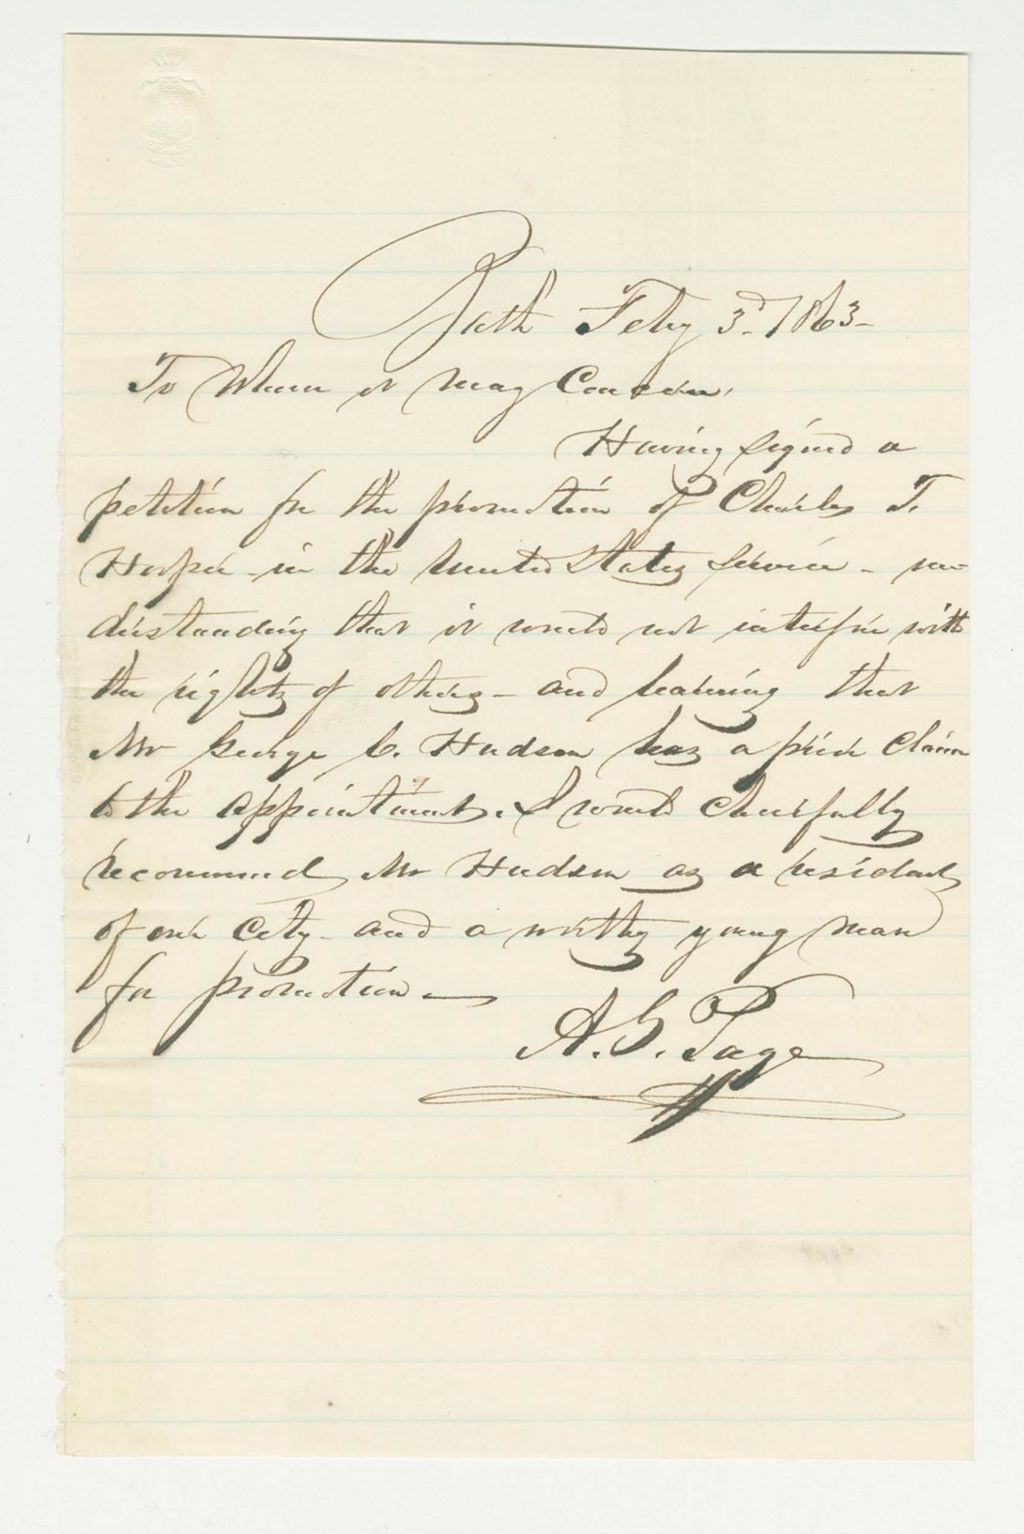 Bath Feby 3d. 1863-
To Whom it may Concern,
Having signed a
petition for the promotion of Charles T.
Hooper - in the United States Service - un-
derstanding that it would not interfere with
the rights of others - and learning that
Mr George C. Hudson has a prior claim
to the appointment, I would cheerfully
recommend Mr Hudson as a resident
of our City - and a worthy young man
for promotion -
A. G. Page